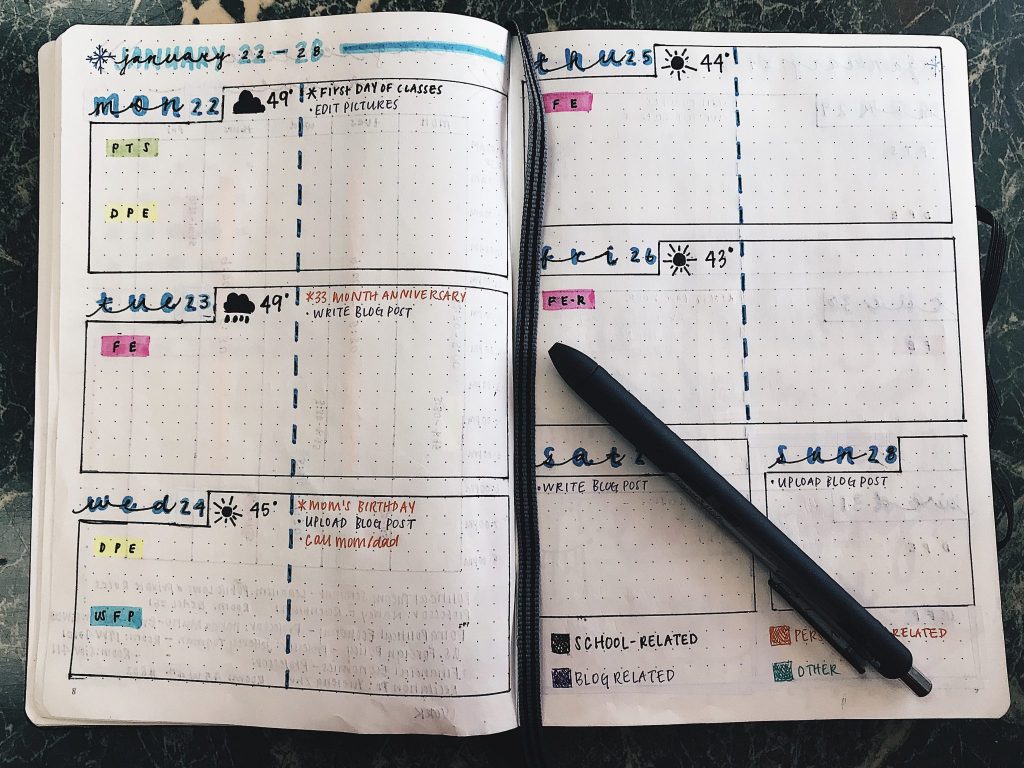 january 22 - 28
JANUARY
mon 22
49°
*FIRST DAY OF CLASSES
• EDIT PICTURES
PTS
DPE
tue 23
49°
*33 MONTH ANNIVERSARY
• WRITE BLOG POST
FE
wed 24
45°
*MOM'S BIRTHDAY
• UPLOAD BLOG POST
• CALL mom/dad
DPE
USFP
8
thu 25
44°
FE
fri 26
43°
FE-R
sat 2
• WRITE BLOG POST
sun 28
• UPLOAD BLOG POST
SCHOOL-RELATED
RELATED
BLOG RELATED
OTHER